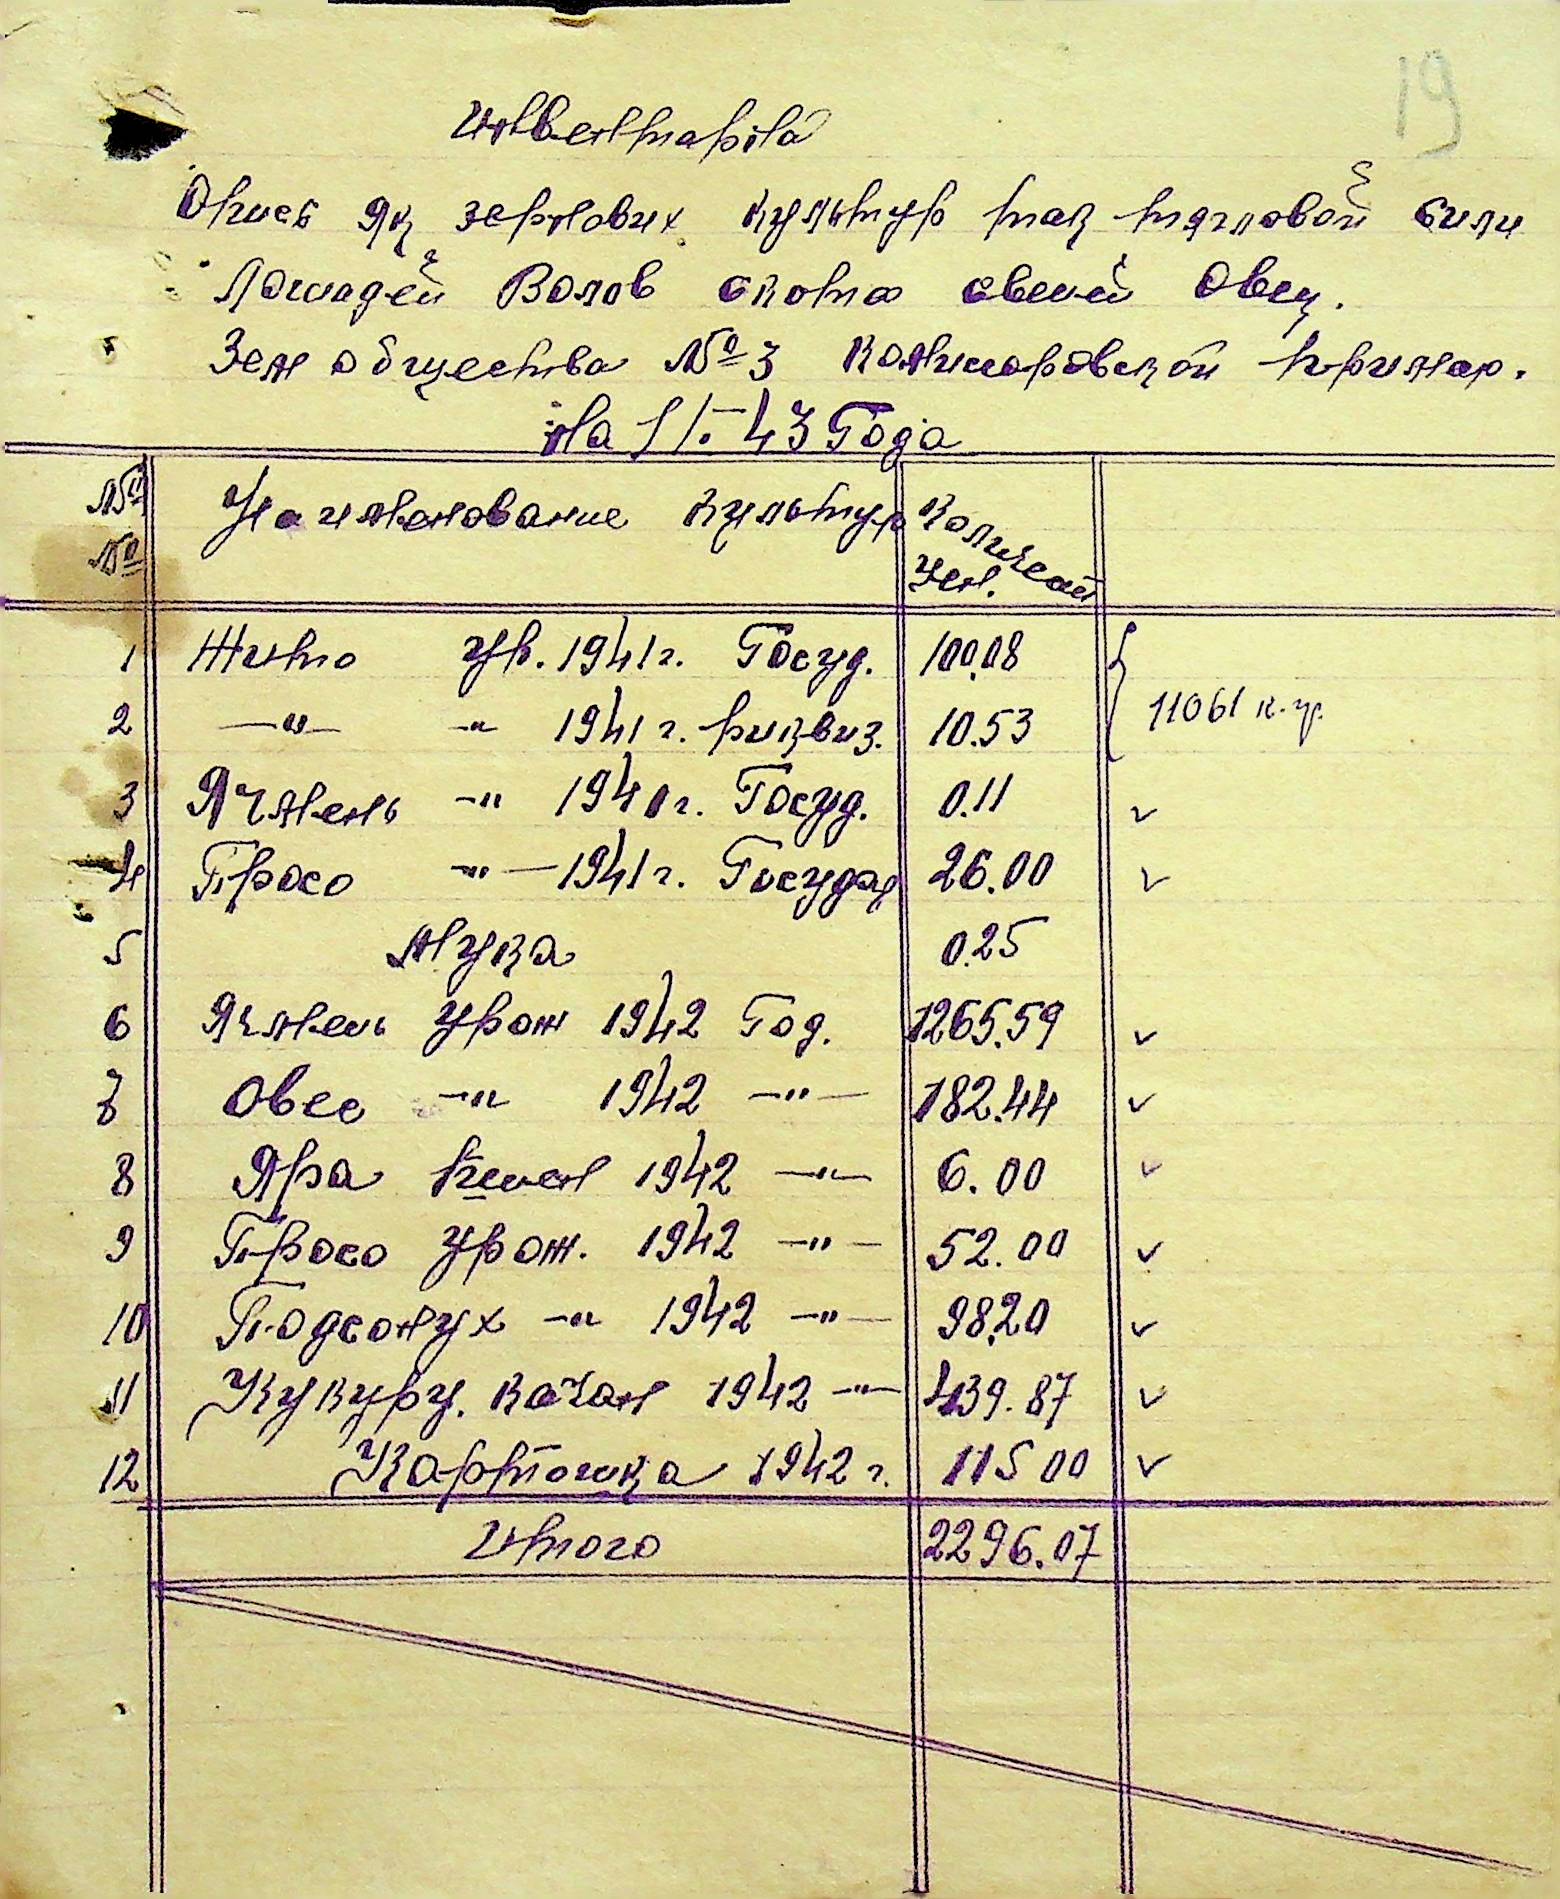 19
Инвентарна
Опись як зернових культур так тягловой сили
Лошадей Волов скота свеней Овец.
Зем общества № 3 Кантисаровской примар.
На 1/I-43 Года
№№ Наименование культур Количест цен.
1 Жито ур. 1941 г. Госуд. 100.08
2 —"— -"- 1941 г. риквиз. 10.53 11061 к-гр.
3 Ячмень -"- 1940 г. Госуд. 0.11 ✓
4 Просо -"- 1941 г. Государ 26.00 ✓
5 Мука 0.25
6 Ячмень урож 1942 Год. 1265.59 ✓
7 Овес -"- 1942 —"— 182.44 ✓
8 Яра пшен 1942 —"— 6.00 ✓
9 Просо урож. 1942 —"— 52.00 ✓
10 Подсонух -"- 1942 —"— 98.20 ✓
11 Кукуру. качан 1942 —"— 439.87 ✓
12 Картошка 1942 г. 115 00 ✓
Итого 2296.07